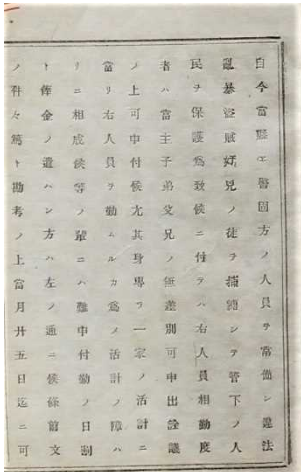 自今當縣エ警固方ノ人員ヲ常備シ違法
亂暴盜賊奸兇ノ徒ヲ捕縛シテ管下ノ人
民ヲ保護爲致候ニ付テハ右人員相勤度
者ハ當主子弟父兄ノ無差別可申出詮議
ノ上可申付候尤其身專ラ一家ノ活計ニ
當リ右人員ヲ勤ムルカ爲メ活計ノ障ハ
リニ相成候等ノ輩ニハ難申付勤ノ日割
ト俸金ノ遣ハシ方ハ左ノ通ニ候條前文
ノ件々篤ト勘考ノ上當月廿五日迄ニ可